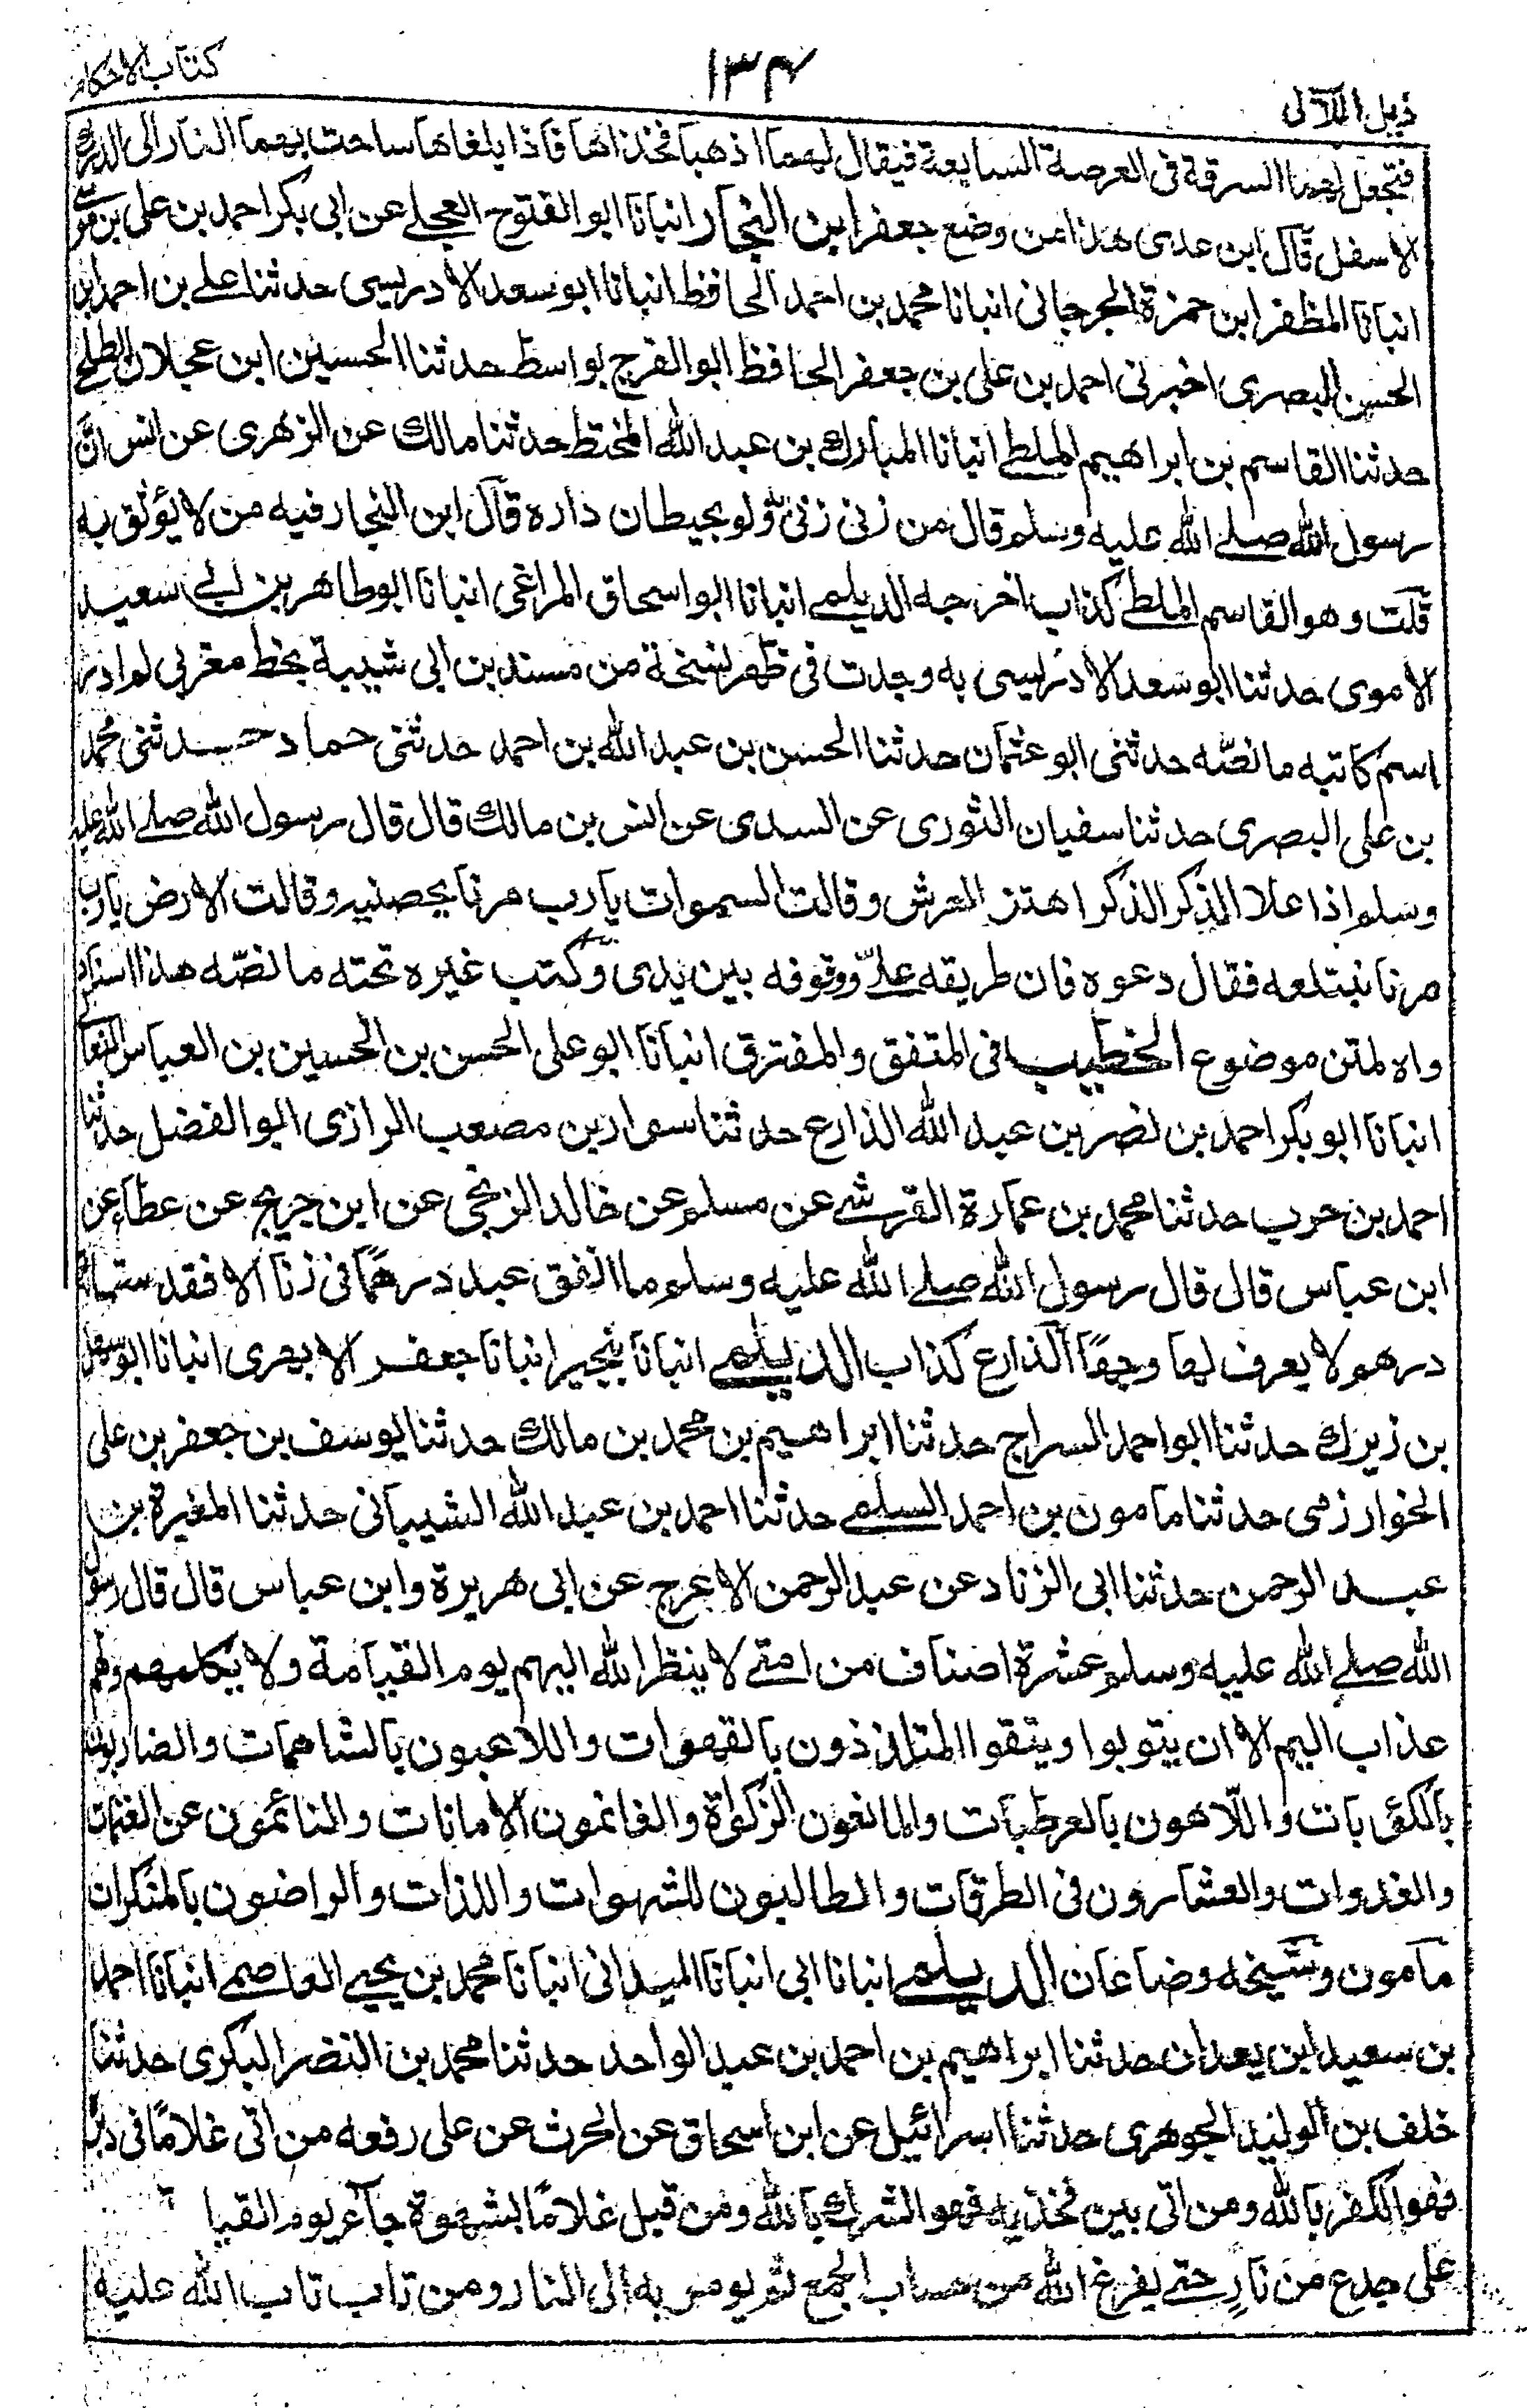 كتاب الاحكام
١٣٤
ذيل اللآلى
فتجعل لهما السرقة فى العرصة السابعة فيقال لهما اذهبا فخذاها فاذا بلغاها ساحت بهما النار الى الدرك
الاسفل قال ابن عدى هذا من وضع جعفر ابن النجار انبانا ابو الفتوح العجلے عن ابى بكر احمد بن على بن موسے
انبانا المظفر ابن حمزة الجرجانى انبانا محمد بن احمد الحافظ انبانا ابو سعد الادريسى حدثنا علے بن احمد بن
الحسن البصرى اخبرنى احمد بن على بن جعفر الحافظ ابو الفرج بواسط حدثنا الحسين ابن عجلان الطلحے
حدثنا القاسم بن ابراهيم الملطے انبانا المبارك بن عبد الله المختط حدثنا مالك عن الزهرى عن انس ان
رسول الله صلے الله عليه وسلم قال من زنى زنى به ولو بحيطان داره قال ابن النجار فيه من لا يوثق به
قلت وهو القاسم الملطے كذاب اخرجه الديلمے انبانا ابو اسحاق المراغى انبانا ابو طاهر بن ابے سعيد
الاموى حدثنا ابو سعد الادريسى به وجدت فى ظهر نسخة من مسند بن ابى شيبة بخط مغربى لم ادر
اسم كاتبه ما نصّه حدثنى ابو عثمان حدثنا الحسن بن عبد الله بن احمد حدثنى حماد حدثنى محمد
بن على البصرى حدثنا سفيان الثورى عن السدى عن انس بن مالك قال قال رسول الله صلے الله عليه
وسلم اذا علا الذكر الذكر اهتز العرش وقالت السموات يا رب مرنا نحصنيه وقالت الارض يا رب
مرنا نبتلعه فقال دعوه فان طريقه علےّ ووقوفه بين يدى وكتب غيره تحته ما نصّه هذا اسناد
واه لمتن موضوع الخطيب فى المتفق والمفترق انبانا ابو على الحسن بن الحسين بن العباس النعالے
انبانا ابو بكر احمد بن نصر بن عبد الله الذارع حدثنا سوار بن مصعب الرازى ابو الفضل حدثنا
احمد بن حرب حدثنا محمد بن عمارة القرشے عن مسلم عن خالد الزنجى عن ابن جريج عن عطاء عن
ابن عباس قال قال رسول الله صلے الله عليه وسلم ما انفق عبد درهمًا فى زنا الا فقد ستمائة
درهم لا يعرف لها وجهًا الذارع كذاب الديلمے انبانا بنجير انبانا جعفر الابهرى انبانا ابو سهل
بن زيرك حدثنا ابو احمد السراج حدثنا ابراهيم بن محمد بن مالك حدثنا يوسف بن جعفر بن على
الخوارزمى حدثنا مامون بن احمد السلمے حدثنا احمد بن عبد الله الشيبانى حدثنا المغيرة بن
عبد الرحمن حدثنا ابى الزناد عن عبد الرحمن الاعرج عن ابى هريرة وابن عباس قال قال رسول
الله صلے الله عليه وسلم عشرة اصناف من امتے لا ينظر الله اليهم يوم القيامة ولا يكلمهم ولهم
عذاب اليم الا ان يتوبوا ويتقوا المتلذذون بالقهوات واللاعبون بالشاهمات والضاربون
بالكوبات واللّاهون بالعرطبات والمانعون الزكواة والغانمون الامانات والنائمون عن العتمات
والغدوات والعشارون فى الطرقات والطالبون للشهوات واللذات والراضون بالمنكرات
مامون وشيخه وضاعان الديلمے انبانا ابى انبانا الميدانى انبانا محمد بن يحيے العاصمے انبانا احمد
بن سعيد ابن بعدان حدثنا ابراهيم بن احمد بن عبد الواحد حدثنا محمد بن النضر البكرى حدثنا
خلف بن الوليد الجوهرى حدثنا اسرائيل عن ابن اسحاق عن الحرث عن على رفعه من اتى غلامًا فى دبره
فهو الكفر بالله ومن اتى بين فخذيه فهو الشرك بالله ومن قبل غلامًا بشهوة جاء يوم القيا
على جدع من نارٍ حتے يفرغ الله من حساب الجمع ثم يومر به الى النار ومن تاب تاب الله عليه